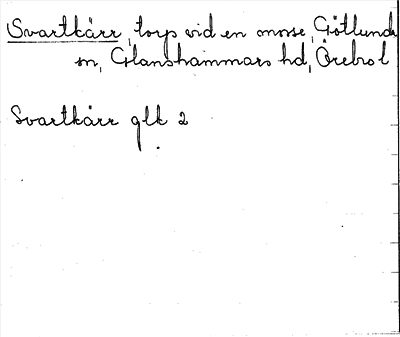 Svartkärr, torp vid en mosse, Götlunda
sn, Glanshammars hd, Örebro l
Svartkärr glk 2